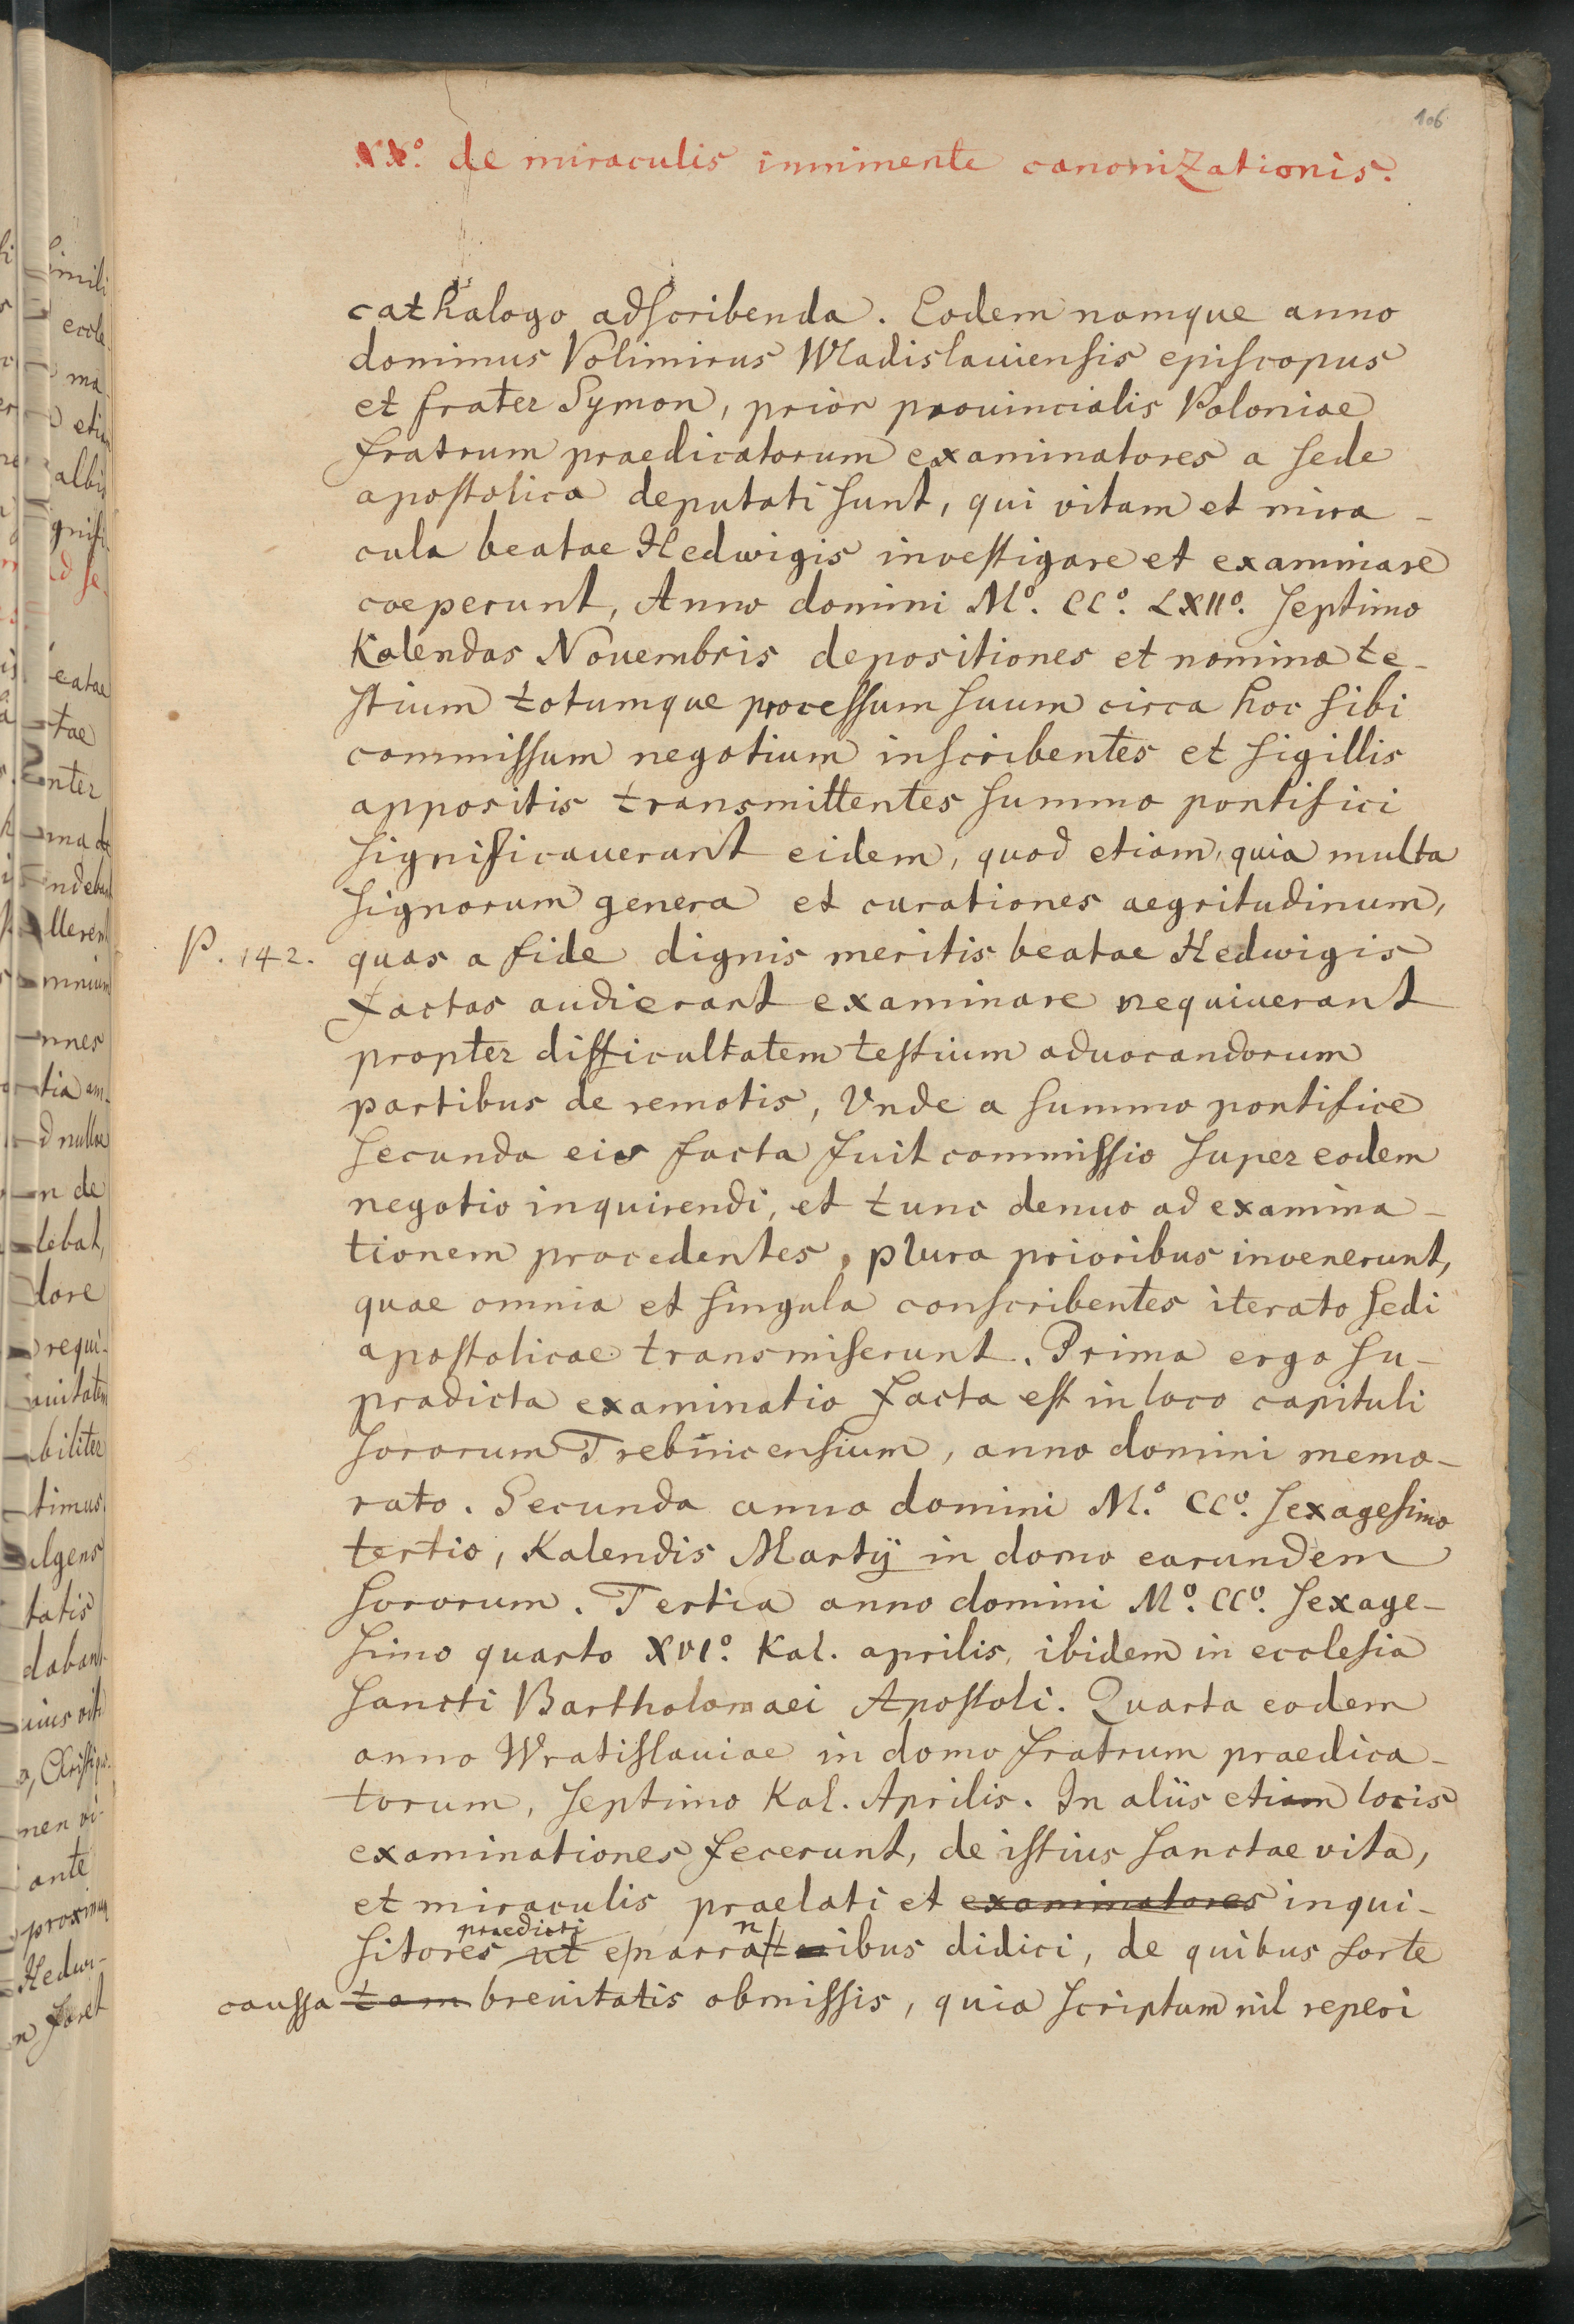 106
XX.º de miraculis inminente canonizationis.
cathalogo adscribenda. Eodem namque anno
dominus Volimirus Wladislauiensis episcopus
et frater Symon, prior prouincialis Poloniae
fratrum praedicatorum examinatores a sede
apostolica deputati sunt, qui vitam et mira-
cula beatae Hedwigis investigare et examinare
coeperunt, Anno domini Mº. CCº. LXIIº. septimo
Kalendas Nouembris depositiones et nomina te-
stium totumque processum suum circa hoc sibi
commissum negotium inscribentes et sigillis
appositis transmittentes summo pontifici
significauerant eidem, quod etiam, quia multa
signorum genera et curationes aegritudinum,
P. 142. quas a fide dignis meritis beatae Hedwigis
factas audierant examinare nequiuerant
propter difficultatem testium aduocandorum
partibus de remotis, Vnde a summo pontifice
secunda eis facta fuit commissio super eodem
negotio inquirendi, et tunc denuo ad examina-
tionem procedentes, plura prioribus invenerunt,
quae omnia et singula conscribentes iterato sedi
apostolicae transmiserunt. Prima ergo su-
pradicta examinatio facta est in loco capituli
sororum Trebnicensium, anno domini memo-
rato. Secunda anno domini M.º CCº. sexagesimo
tertio, Kalendis Martij in domo earundem
sororum. Tertia anno domini Mº. CCº. sexage-
simo quarto XVI.º Kal. aprilis, ibidem in ecclesia
sancti Bartholomaei Apostoli. Quarta eodem
anno Wratislauiae in domo fratrum praedica-
torum, septimo Kal. Aprilis. In aliis etiam locis
examinationes fecerunt, de istius sanctae vita,
et miraculis praelati et examinatores inqui-
praedicti n
sitores ut enarratibus didici, de quibus forte
caussa tam breuitatis obmissis, quia scriptum nil reperi